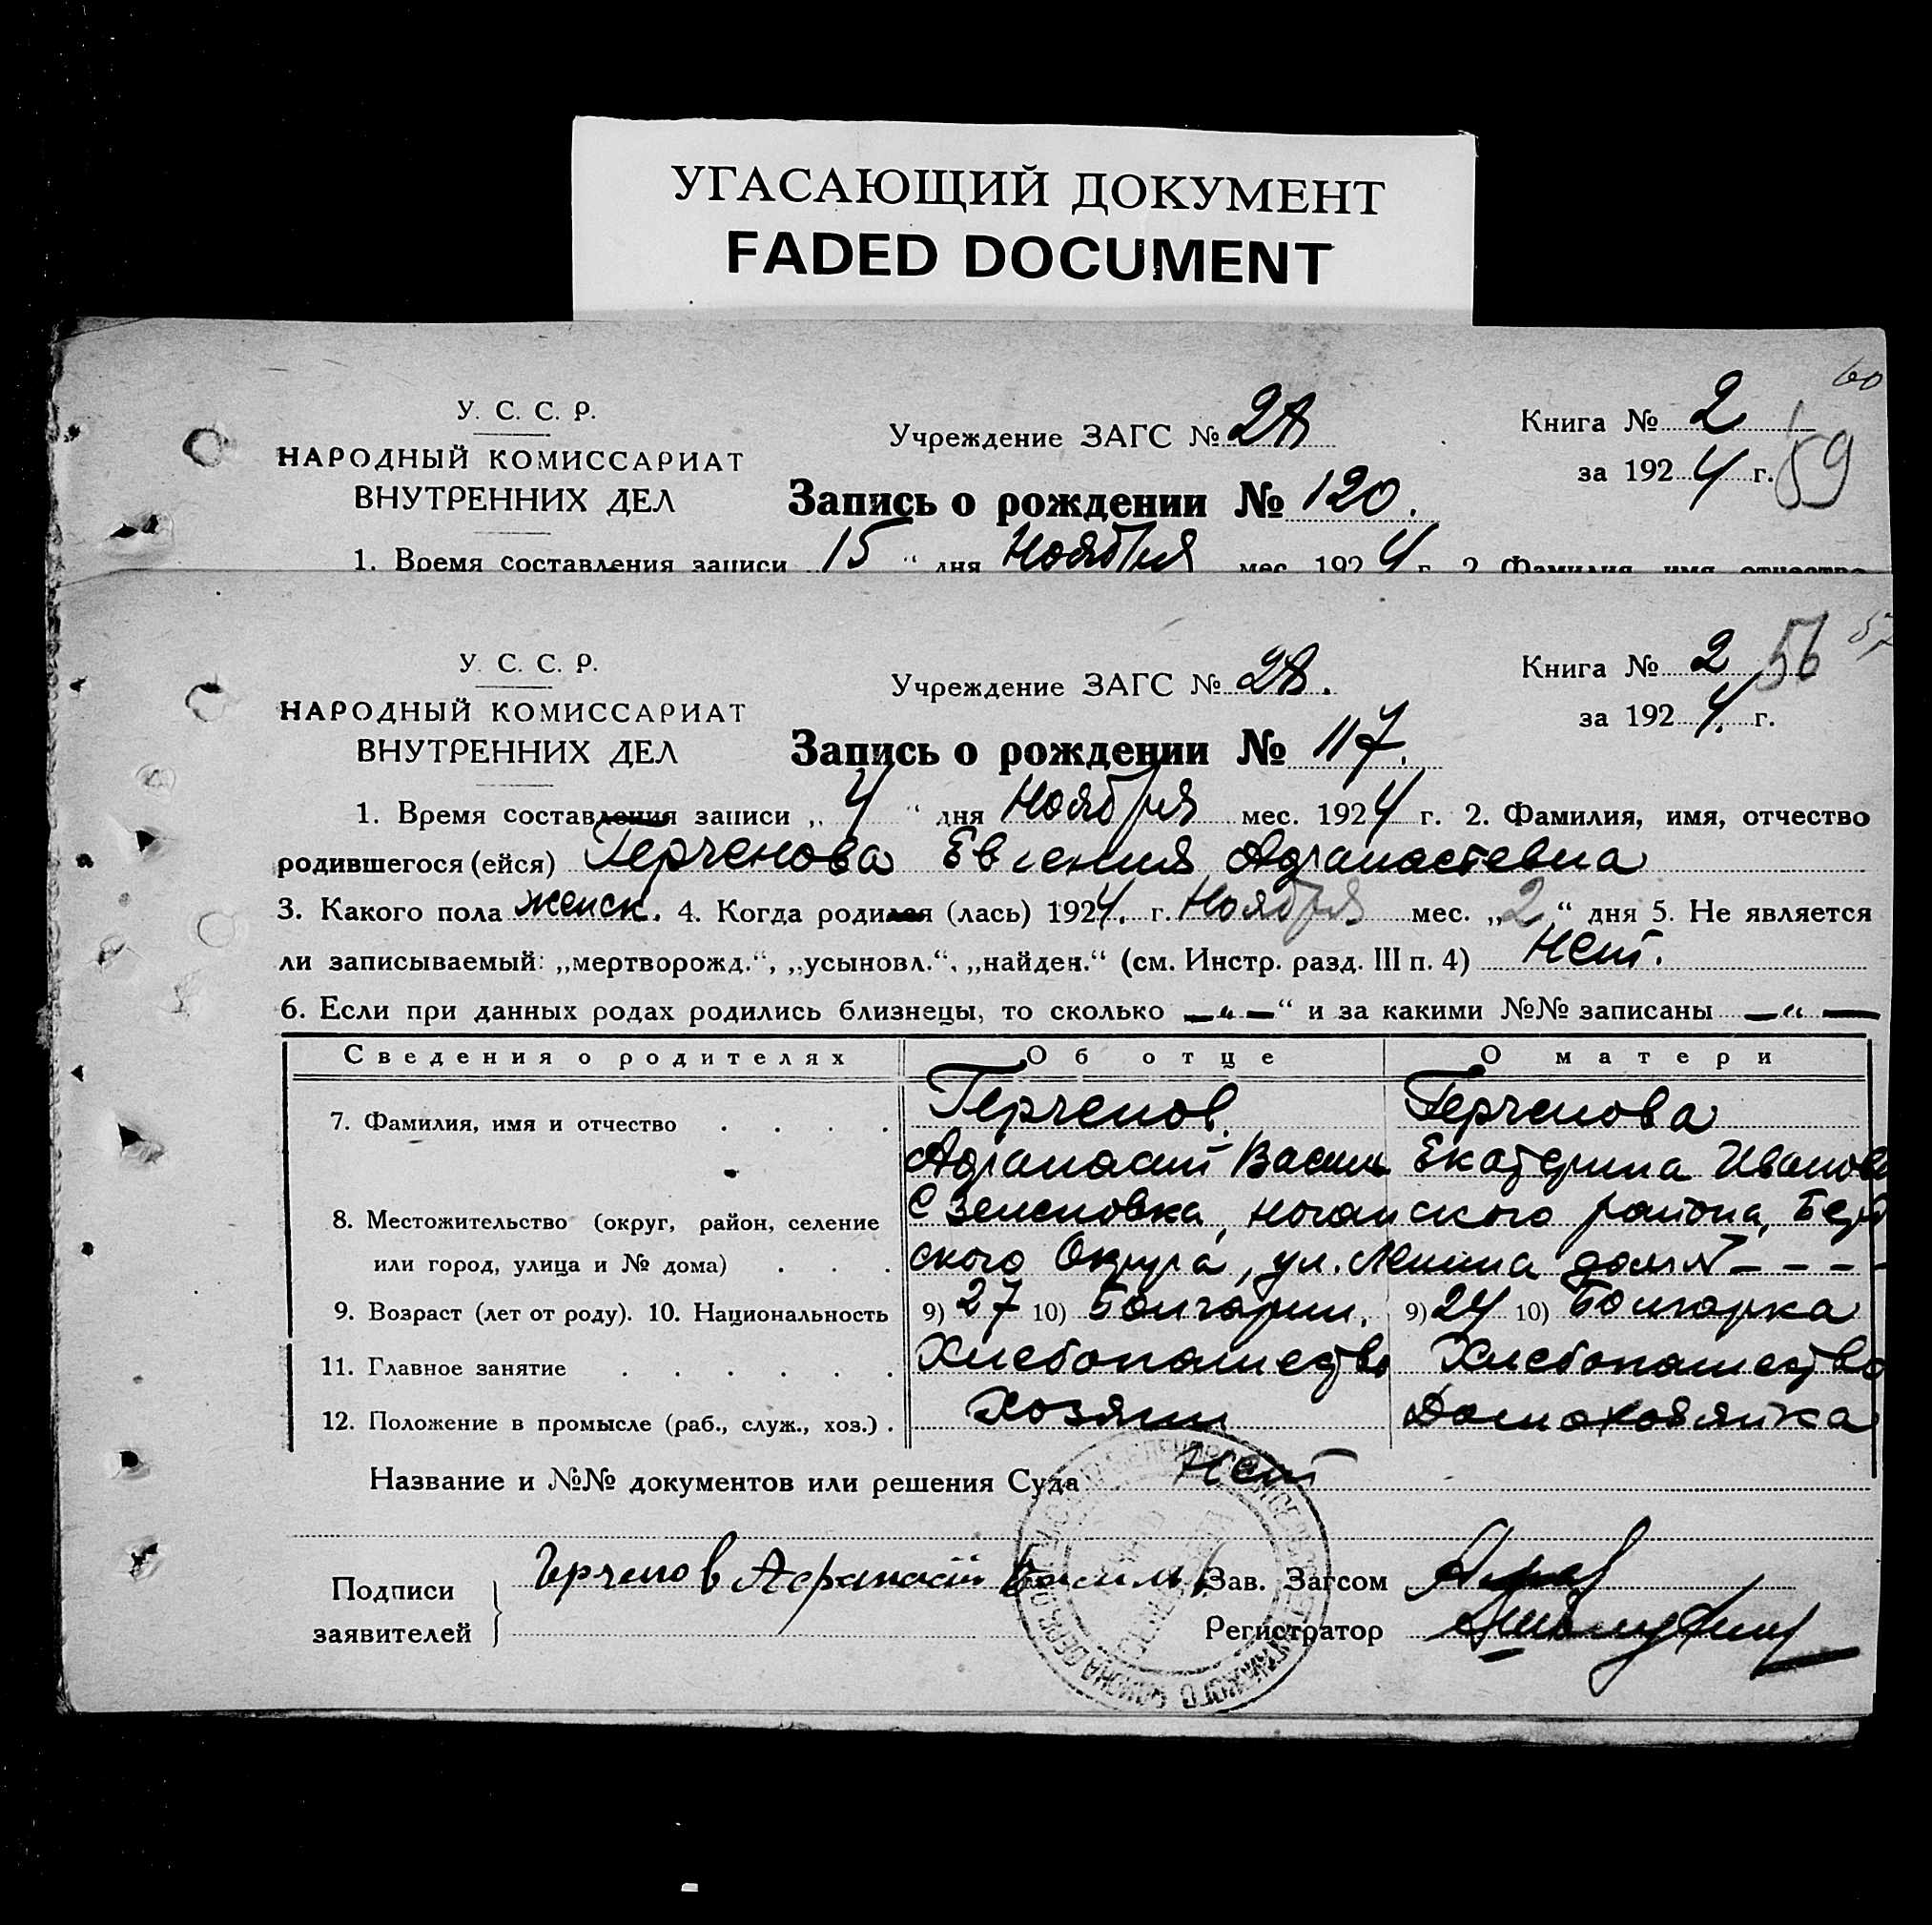 УГАСАЮЩИЙ ДОКУМЕНТ
FADED DOCUMENT
60
У. С. С. Р.
НАРОДНЫЙ КОМИССАРИАТ
ВНУТРЕННИХ ДЕЛ
Учреждение ЗАГС №
Книга № 2
за 1924 г. 59
Запись о рождении № 120.
1. Время составления записи 15 " дня Ноября мес. 1924 г. 2. Фамилия, имя, отчество
У. С. С. Р.
НАРОДНЫЙ КОМИССАРИАТ
ВНУТРЕННИХ ДЕЛ
Учреждение ЗАГС №
Книга № 2 56 57
за 1924. г.
Запись о рождении № 117.
1. Время составления записи „ 4 " дня Ноября мес. 1924 г. 2. Фамилия, имя, отчество
родившегося (ейся) Герченова Евгения Афанастевна
3. Какого пола женск. 4. Когда родился (лась) 1924. г. Ноября мес. „2" дня 5. Не является
ли записываемый: „мертворожд.“, „усыновл.“, „найден.“ (см. Инстр. разд. III п. 4) Нет.
6. Если при данных родах родились близнецы, то сколько —"—“ и за какими №№ записаны —"—
Сведения о родителях Об отце О матери
7. Фамилия, имя и отчество . . . . Герченов. Герченова
Афанасий Васил Екатерина Иванов
8. Местожительство (округ, район, селение С Зеленовка, ноганского района,
или город, улица и № дома) . . . ского Округа, ул. Ленина дом № - - - -
9. Возраст (лет от роду). 10. Национальность 9) 27 10) Болгарин. 9) 24 10) Болгарка
11. Главное занятие . . . . . . Хлебопашество Хлебопашество
12. Положение в промысле (раб., служ., хоз.) . Хозяин Домохозяйка
Название и №№ документов или решения Суда Нет
Подписи
заявителей
Герченов Афанасий Васильев
Зав. Загсом
Регистратор